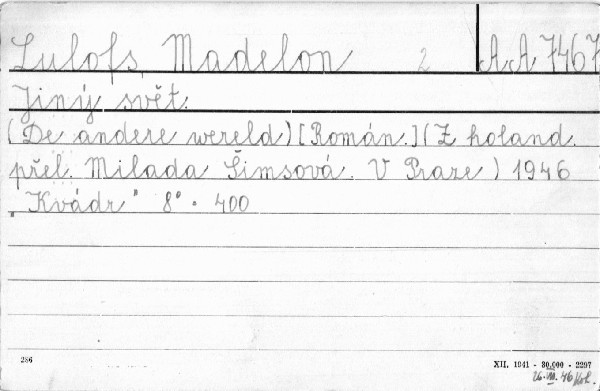 Lulofs, Madelon 2 AA 7467
Jiný svět.
(De andere wereld) [Román.] (Z holand.
přel. Milada Šimsová. V Praze) 1946
"Kvádr" 8° . 400
286
XII. 1941 - 30.000 - 2297
26. VII. 46